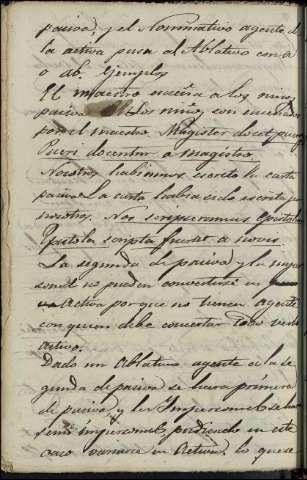 pasiva, y el Nominativo agente de
la activa pasa al Ablativo con a
o ab. Ejemplos
El maestro enseña a los niños
pasiva Los niños son enseñados
por el maestro. Magister docet pueros
Pueri docentur a magistro
Nosotros habiamos escrito la carta
pasiva La carta habia sido escrita por
nosotros. Nos scripseramus Epistolam
Epistola scripta fuerat a nobis
La segunda de pasiva y la imper
sonal no pueden convertirse en
activa porque no tienen Agente
con quien debe concertar todo verbo
activo.
Dado un Ablativo agente a la se
gunda de pasiva se hara primera
de pasiva, y los Impersonales se hacen
semi impersonales pudiendo en este
caso variarse en Activa, lo que